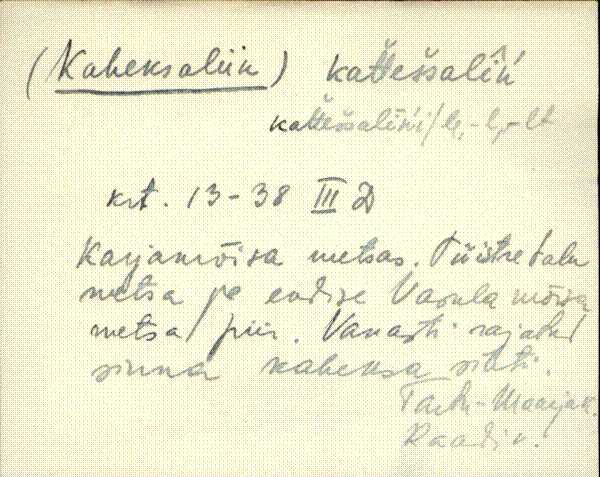 (Kaheksaliin) kattešsalin̂
kattešsalini/le, -l, -lt
krt. 13-38 III D
Karjamõisa metsas. Tüistre talu
metsa ja endise Vasula mõisa
metsa piir. Vanasti rajatud
sinna kaheksa sihti.
Tartu-Maarja k.
Raadi v.